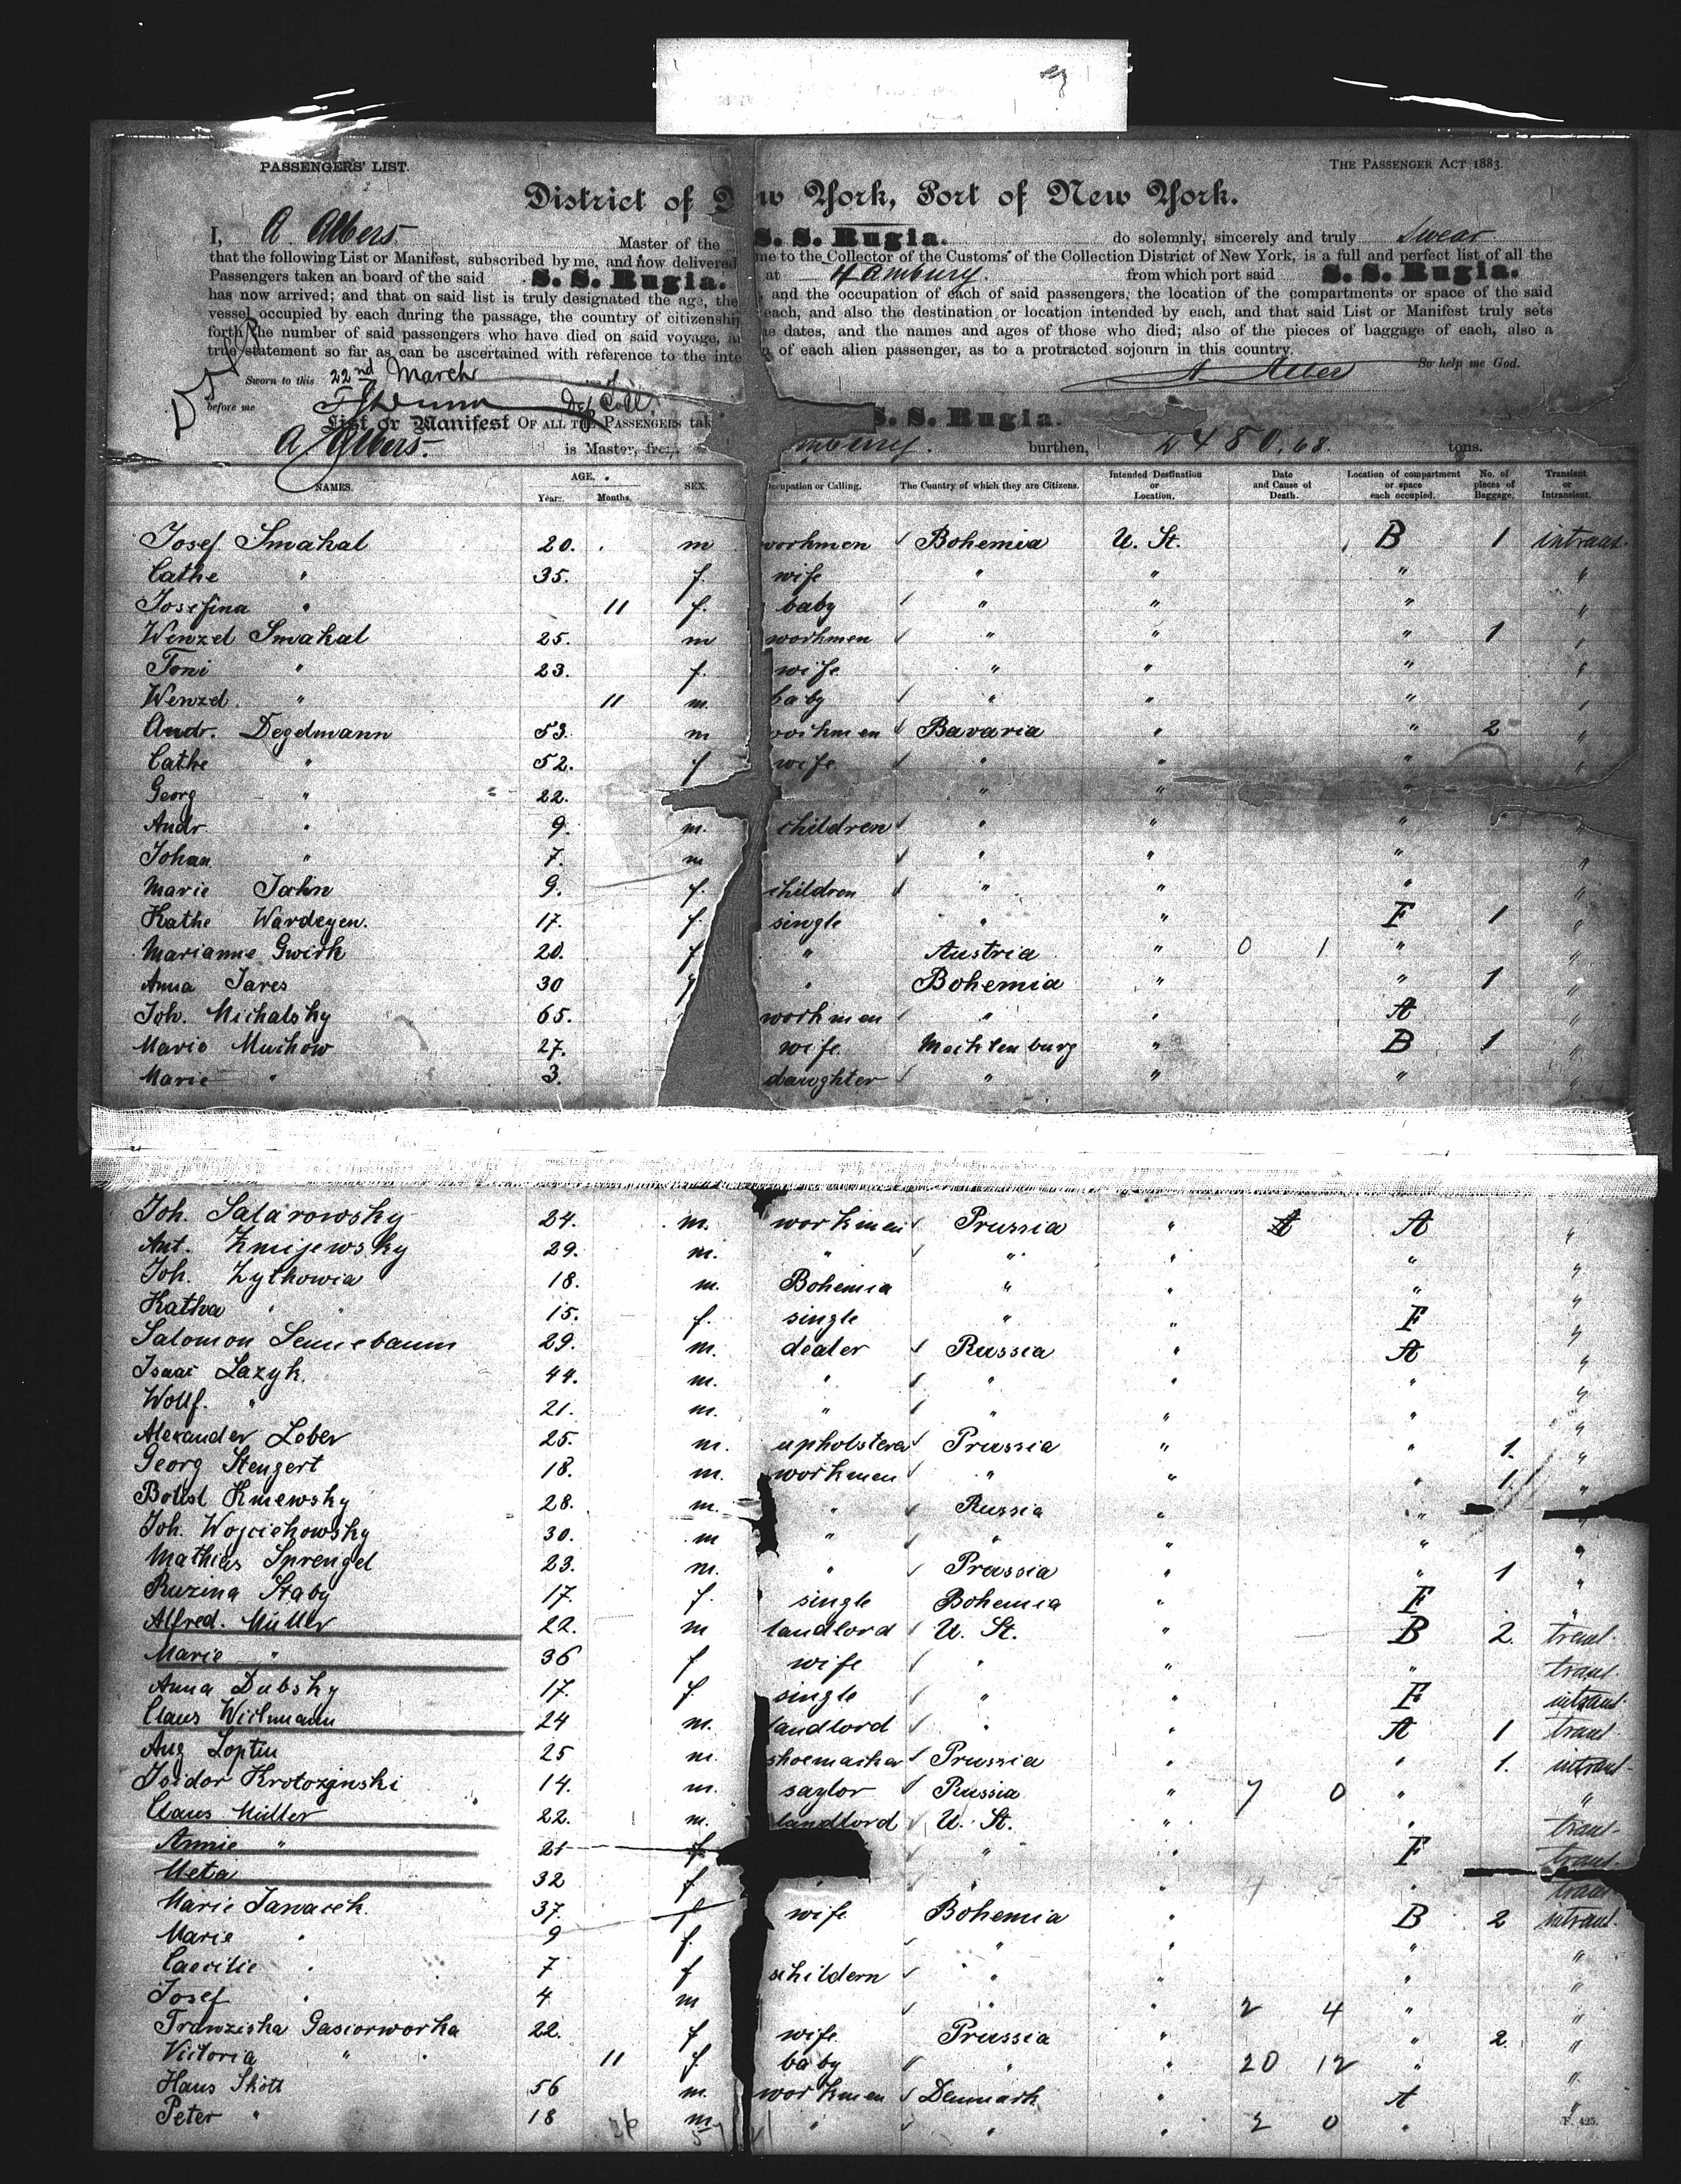 PASSENGERS' LIST. THE PASSENGER ACT 1883.
District of New York, Port of New York.
I, A. Albers. Master of the S. S. Rugia. do solemnly, sincerely and truly swear
that the following List or Manifest, subscribed by me, and now delivered me to the Collector of the Customs of the Collection District of New York, is a full and perfect list of all the
Passengers taken an board of the said S. S. Rugia. at Hamburg. from which port said S. S. Rugia.
has now arrived; and that on said list is truly designated the age, the and the occupation of each of said passengers, the location of the compartments or space of the said
vessel occupied by each during the passage, the country of citizenship each, and also the destination or location intended by each, and that said List or Manifest truly sets
forth the number of said passengers who have died on said voyage, dates, and the names and ages of those who died; also of the pieces of baggage of each, also a
true statement so far as can be ascertained with reference to the inte of each alien passenger, as to a protracted sojourn in this country.
Sworn to this 22nd March So help me God.
before me Dep Coll.
List or Manifest OF ALL THE PASSENGERS tak S. S. Rugia.
A. Albers. is Master, from burthen, 2480.68. tons.
NAMES. AGE. Years. Months. SEX. Occupation or Calling. The Country of which they are Citizens. Intended Destination or Location. Date and Cause of Death. Location of compartment or space each occupied. No. of pieces of Baggage. Transient or Intransient.
Josef Smahal 20. m workmen Bohemia U. St. B 1 intrans.
Cathe " 35. f. wife " " " "
Josefina " 11 f. baby " " " "
Wenzel Smahal 25. m workmen " " " 1 "
Toni " 23. f. wife " " " "
Wenzel " 11 m. baby " " " "
Andr. Degelmann 53. m workmen Bavaria " " 2 "
Cathe " 52. f wife " " " "
Georg " 22. " " " "
Andr. " 9. m. children " " " "
Johan " 7. m " " " "
Marie Jahn 9. f. children " " " "
Kathe Wardeyen. 17. f. single " " F 1 "
Marianne Gwirk 20. f " Austria " 0 1 " "
Anna Jares 30 f " Bohemia " " 1 "
Joh. Michalsky 65. workmen " " A "
Marie Muchow 27. wife Mecklenburg " B 1 "
Marie " 3. daughter " " " "
Joh. Salarowsky 24. m. workmen Prussia " A "
Ant. Zmijewsky 29. m. " " " " "
Joh. Zythowia 18. m. Bohemia " " " "
Katha " 15. f. single " " F "
Salomon Sennebaum 29. m. dealer Russia " A "
Isaac Lazyk. 44. m. " " " " "
Wolf. " 21. m. " " " " "
Alexander Lober 25. m. upholsterer Prussia " " 1. "
Georg Stengert 18. m. workmen " " " 1. "
Kmewsky 28. m. " Russia " " "
Joh. Wojciehowsky 30. m " " " " "
Mathias Sprengel 23. m. " Prussia " " 1 "
Ruzina Staby 17. f. single Bohemia " F "
Alfred. Müller 22. m landlord U. St. " B 2. trant.
Marie " 36 f wife " " " trant.
Anna Dubsky 17. f. single " " F intrant.
Claus Wichmann 24 m. landlord " " A 1 trant
Aug Loptin 25 m. shoemacher Prussia " " 1. intrant.
Isidor Krotozinski 14. m. saylor Russia " 7 0 " "
Claus Müller 22. m. landlord U. St. " " trant.
Annie " 21 f " F trant.
Meta 32 f " " " " trant
Marie Janacek. 37. f wife Bohemia " B 2 intrant.
Marie " 9 f. " " " "
Caecilie " 7 f schildern " " " "
Josef " 4 m " " 2 4 " "
Franziska Gasiorworka 22. f wife Prussia " " 2 "
Victoria " 11 f. baby " " 20 12 " "
Hans Skött 56 m. workmen Denmark " A "
Peter " 18 m. " " " 2 0 "
F. 425.